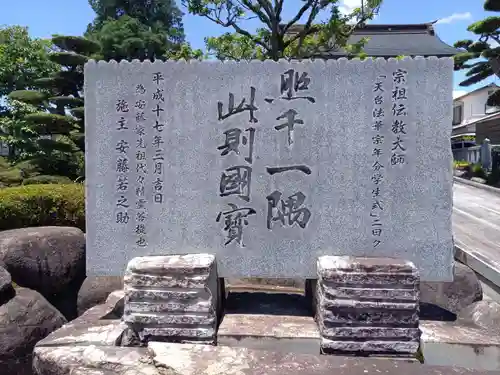 宗祖伝教大師
「天台法華宗年分学生式」ニ曰ク
照千一隅
此則國寳
平成十七年三月吉日
為安藤家先祖代々精霊菩提也
施主 安藤岩之助